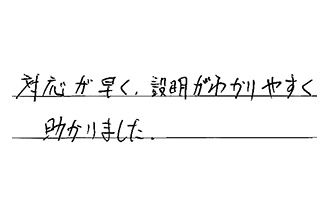 対応が早く、説明がわかりやすく
助かりました.